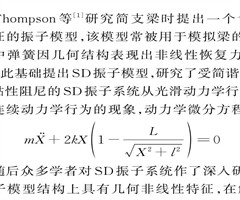 Thompson 等[1]研究简支梁时提出一个
征的振子模型,该模型常被用于模拟梁的
中弹簧因几何结构表现出非线性恢复力
此基础提出SD振子模型,研究了受简谐
粘性阻尼的SD振子系统从光滑动力学行
连续动力学行为的现象,动力学微分方程
mẌ + 2kX(1 − L/√(X² + l²)) = 0
随后众多学者对SD振子系统作了深入研
子模型结构上具有几何非线性特征,在